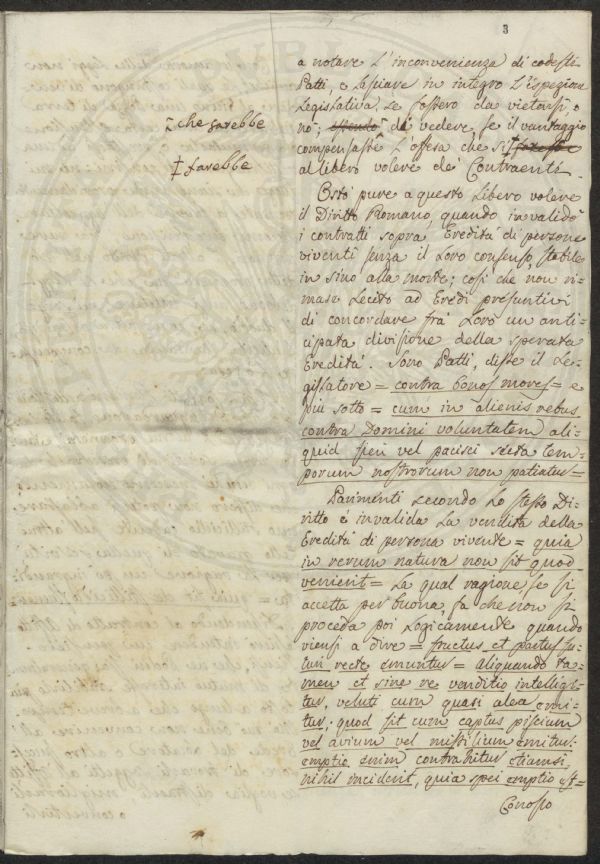 3
a notare l'inconvenienza di codesti
Patti, e lasciare in integro l'Ispezione
Legislativa, se fossero da vietarsi, o
nò; essendo di vedere, se il vantaggio
compensasse l'offesa che si
al libero volere de' Contraenti.
⁊ che sarebbe
‡ farebbe
Ostò pure a questo libero volere
il Diritto Romano, quando invalidò
i contratti sopra Eredità di persone
viventi senza il loro consenso, stabile
in sino alla morte; così che non ri=
mase lecito ad Eredi presuntivi
di concordare frà loro un anti=
cipata divisione della sperata
Eredità. Sono Patti, disse il Le=
gislatore = contra bonos mores = e
più sotto = cum in alienis rebus
contra Domini voluntatem ali=
quid fieri vel pacisci secta tem=
porum nostrorum non patiatur =
Parimenti secondo lo stesso Di=
ritto è invalida la vendita della
Eredità di persona vivente = quia
in rerum natura non sit quod
venierit = La qual ragione, se si
accetta per buona, fa che non si
proceda poi logicamente quando
viensi a dire = fructus et partus fu=
turi recte emuntur = aliquando ta=
men et sine re venditio intelligi=
tur, veluti cum quasi alea emi=
tur; quod fit cum captus piscium
vel avium vel missilium emitur:
emptio enim contrahitur etiamsi
nihil inciderit, quia spei emptio est=
Conosco